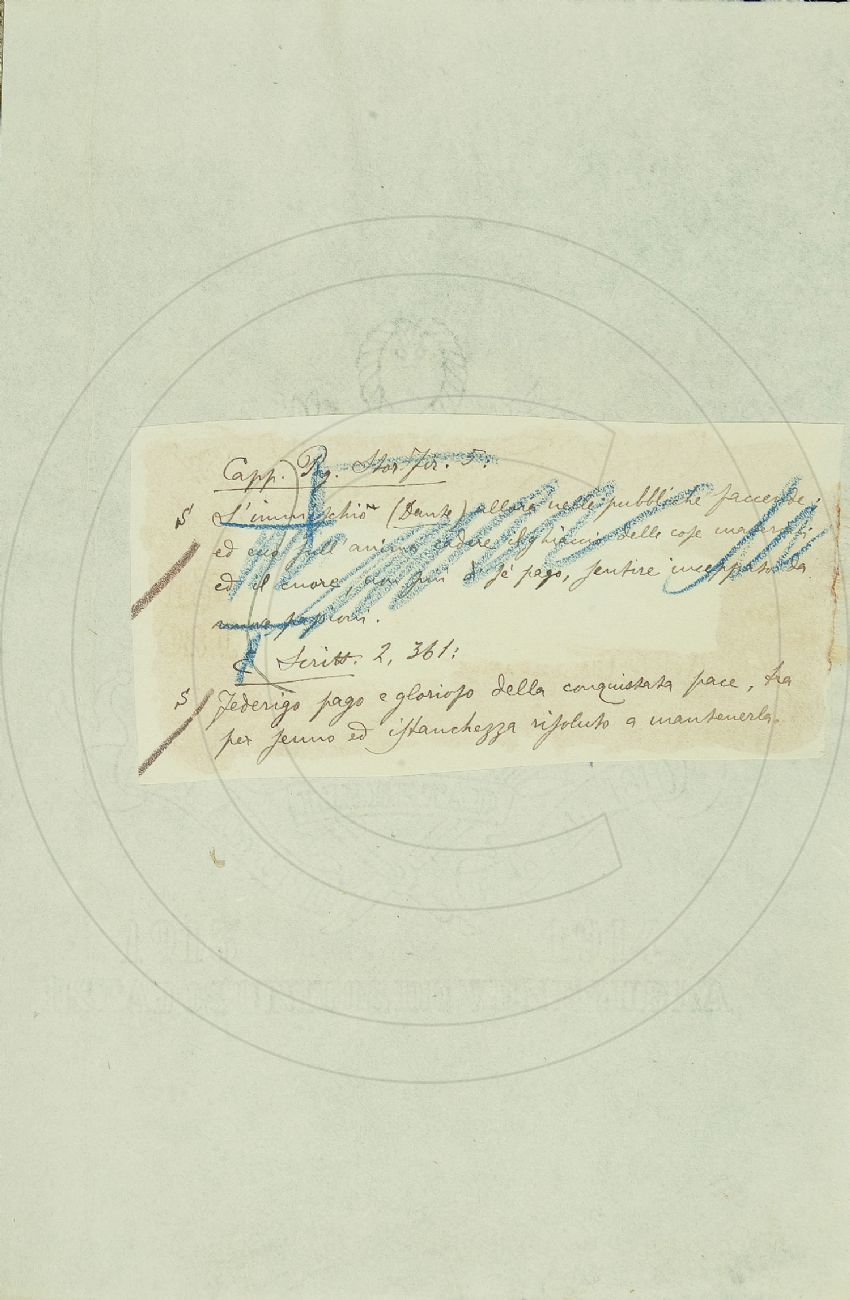 Capp. Pg. Stor. Fir. 5:
S' S'immischiò (Dante) allora nelle pubbliche faccende;
ed ecco sull'animo cadere delle cose materiali
ed il cuore, non più di sé pago, sentire inceppato da
nuove passioni.
C Scritt. 2, 361:
S Federigo pago e glorioso della conquistata pace, tra
per senno ed istanchezza risoluto a mantenerla.